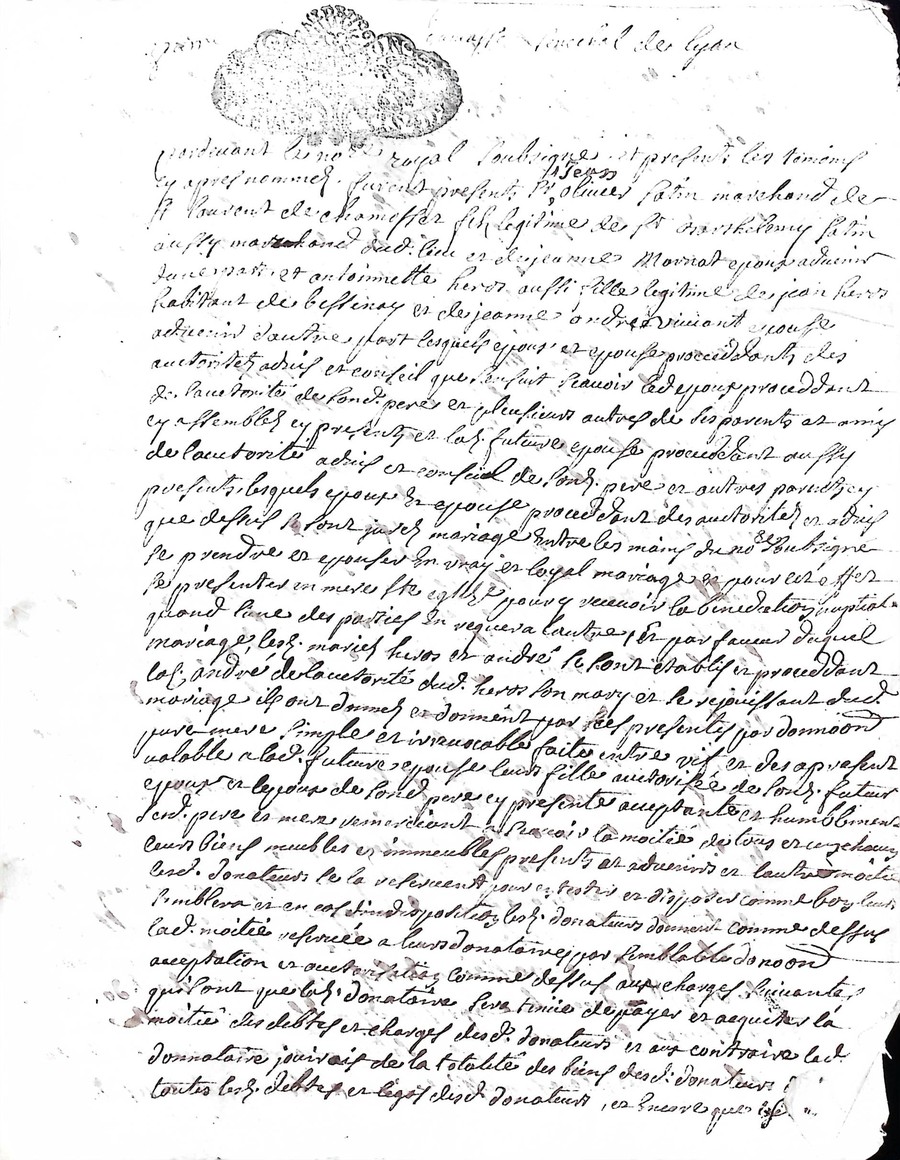 de lyon
pardevant le no.re royal soubsigné et presents les temoins
cy apres nommés furent presents Sr olivier fatin marchand de
St laurent de chamosset fils legitime de Sr Barthelemy fatin
aussy marchand dud. lieu et de jeanne Mornat epoux advenir
d'une part et antoinette heros aussi fille legitime de jean heros
habitant de bessenay et de jeanne andre vivant epouse
advenir d'autre part lesquels epoux et epouse procedants des
authorités advis et conseil que sensuit scavoir led epoux proceddant
de l'autorité de sond. pere et plusieurs autres de ses parents et amis
cy assemblés cy presents et lad. future epouse proceddant aussy
de lautorité advis et conseil de sond. pere et autres parents cy
presents, lesquels epoux et epouse proceddant des autorités et advis
que dessus se sont jurés mariage entre les mains du no.re soubsigne
se prendre et epouser en vray et loyal mariage et pour cet effet
se presenter en mere ste eglize pour y recevoir la benediction nuptiale
quand l'une des parties en requera l'autre, Et par faveur duquel
mariage, lesd. mariés heros et andré se sont etablis et proceddant
lad. andré de lautorité dud. heros son mary et se rejouissant dud.
mariage ils ont donnés et donnent par ses presentes par donnaon
pure mere simple et irrevocable faite entre vif et des apresent
valable a lad. future epouse leurs fille autorisée de sond. futur
epoux et lepoux de sond pere cy presente acceptante et humblement
sesd. pere et mere remerciant a scavoir la moitié de tous et un chacun
leurs biens meubles et immeubles presents et advenirs et lautre moitié
lesd. donateurs se la reservant pour en tester et disposer comme bon leurs
semblera et en cas d'indisposition lesd. donateurs donnent comme dessus
lad. moitié reservée a leurs donataire par semblable donaon
acceptation et autorisation comme dessus aux charges suivantes
qui sont que lad. donataire sera tenüe de payer et acquiter la
moitié des debtes et charges desd. donateurs et aux contraire lad.
donnataire jouirait de la totalité des biens desd. donateurs
toutes lesd. debtes et legos desd. donateurs, et encore que